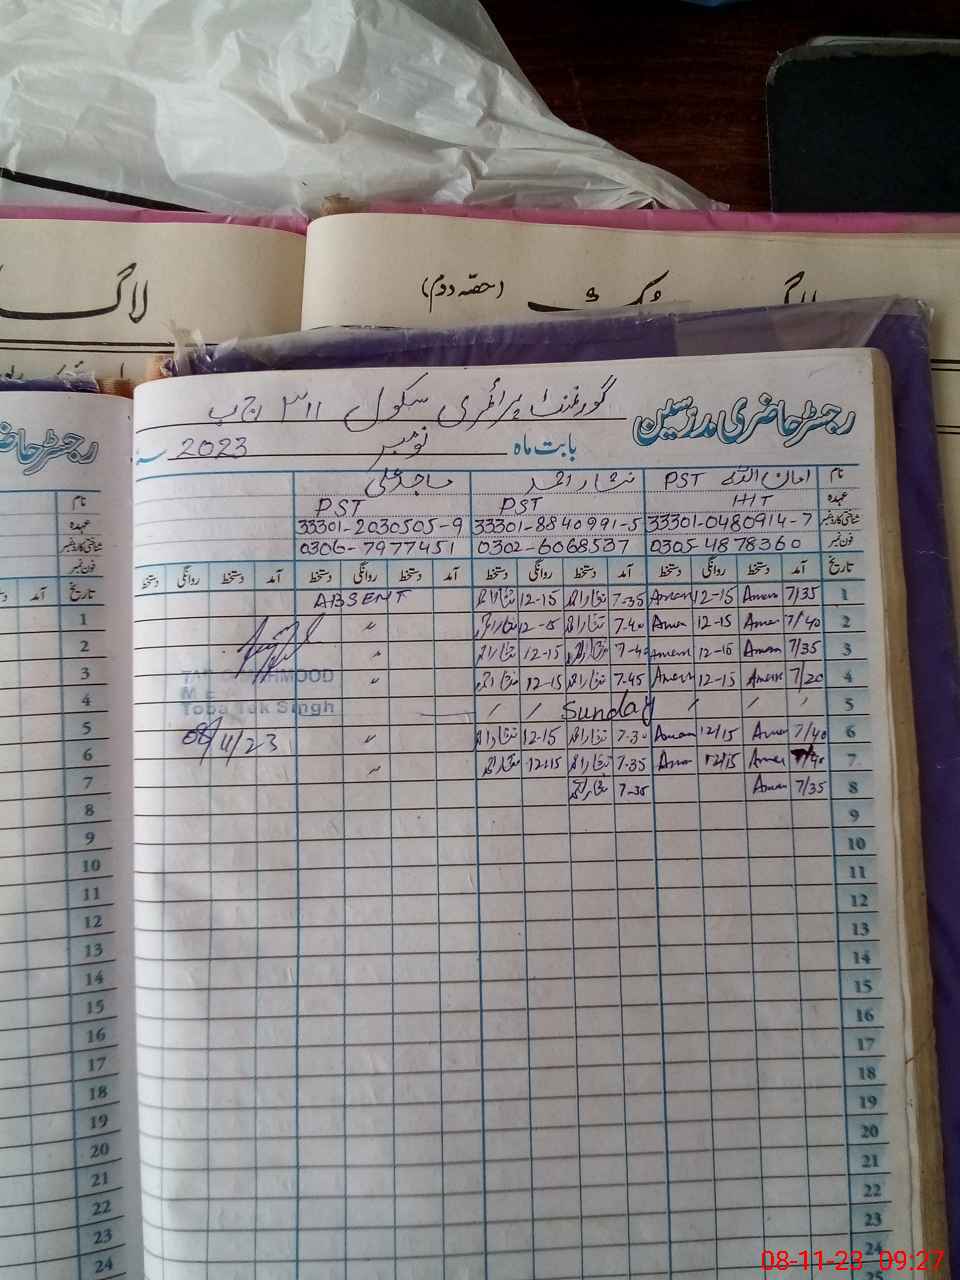 لاگ
(حصّہ دوم)
رجسٹر حاضری مدرسین
گورنمنٹ پرائمری سکول ۳۱۱ ج ب
بابت ماہ نومبر سنہ 2023
نام امان اللہ PST نثار احمد ساجد علی
عہدہ HIT PST PST
شناختی کارڈ نمبر 33301-0480914-7 33301-8840991-5 33301-2030505-9
فون نمبر 0305-4878360 0302-6068537 0306-7977451
تاریخ آمد دستخط روانگی دستخط آمد دستخط روانگی دستخط آمد دستخط روانگی دستخط آمد دستخط روانگی دستخط
1 7/35 Aman 12-15 Aman 7-35 12-15 ABSENT
2 7/40 Aman 12-15 Aman 7-40 〃
3 7/35 Aman Aman 12-15 〃
4 7/20 Aman 12-15 Aman 7-45 12-15 〃
MEHMOOD
Toba Tek Singh
5 Sunday
6 7/40 Aman 12/15 Aman 7-30 12-15 〃
08/11/23
7 Aman 12/15 Aman 7-35 12-15 〃
8 7/35 Aman 7-35
9
10
11
12
13
14
15
16
17
18
19
20
21
22
23
24
25
رجسٹر حاضری
نام
عہدہ
شناختی کارڈ نمبر
فون نمبر
تاریخ آمد
1
2
3
4
5
6
7
8
9
10
11
12
13
14
15
16
17
18
19
20
21
22
23
24
08-11-23 09:27